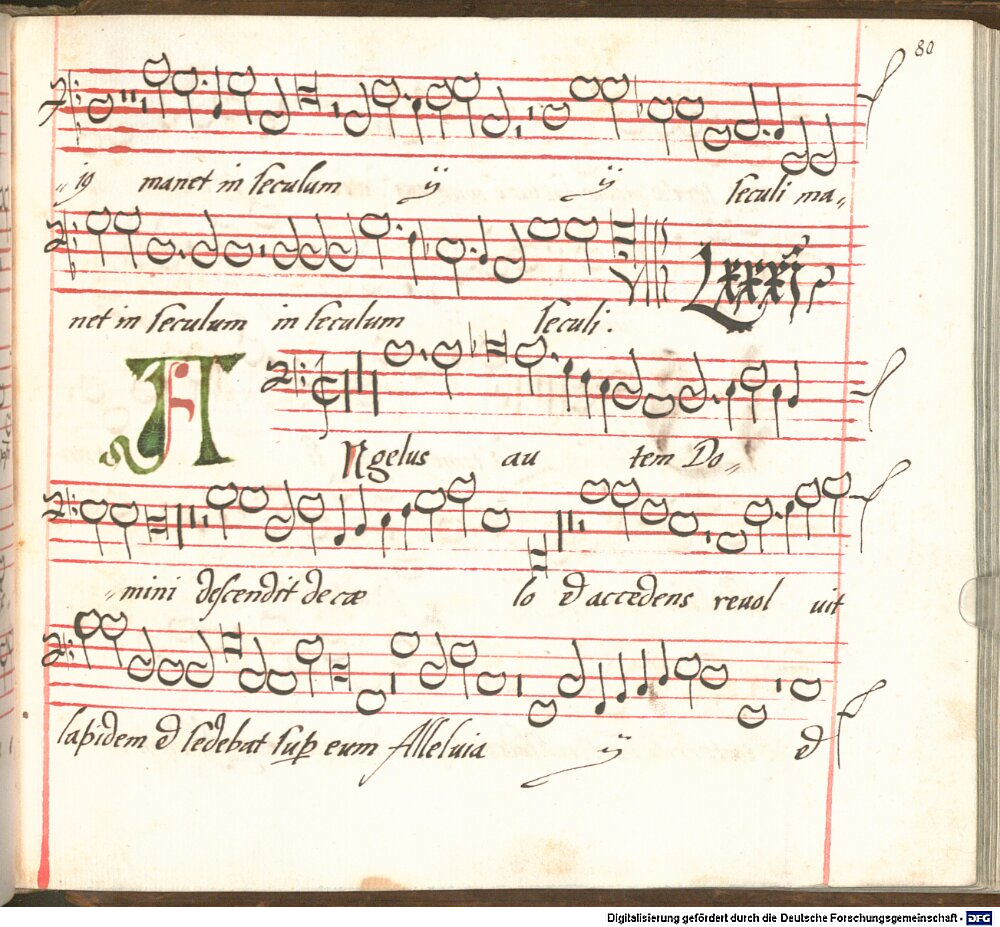 80
„ io manet in seculum ij ij seculi ma„
net in seculum in seculum seculi.
Lxxxij
ANgelus au tem Do„
„mini descendit de cæ lo & accedens reuol uit
lapidem & sedebat sup eum Alleluia ij &
Digitalisierung gefördert durch die Deutsche Forschungsgemeinschaft - DFG